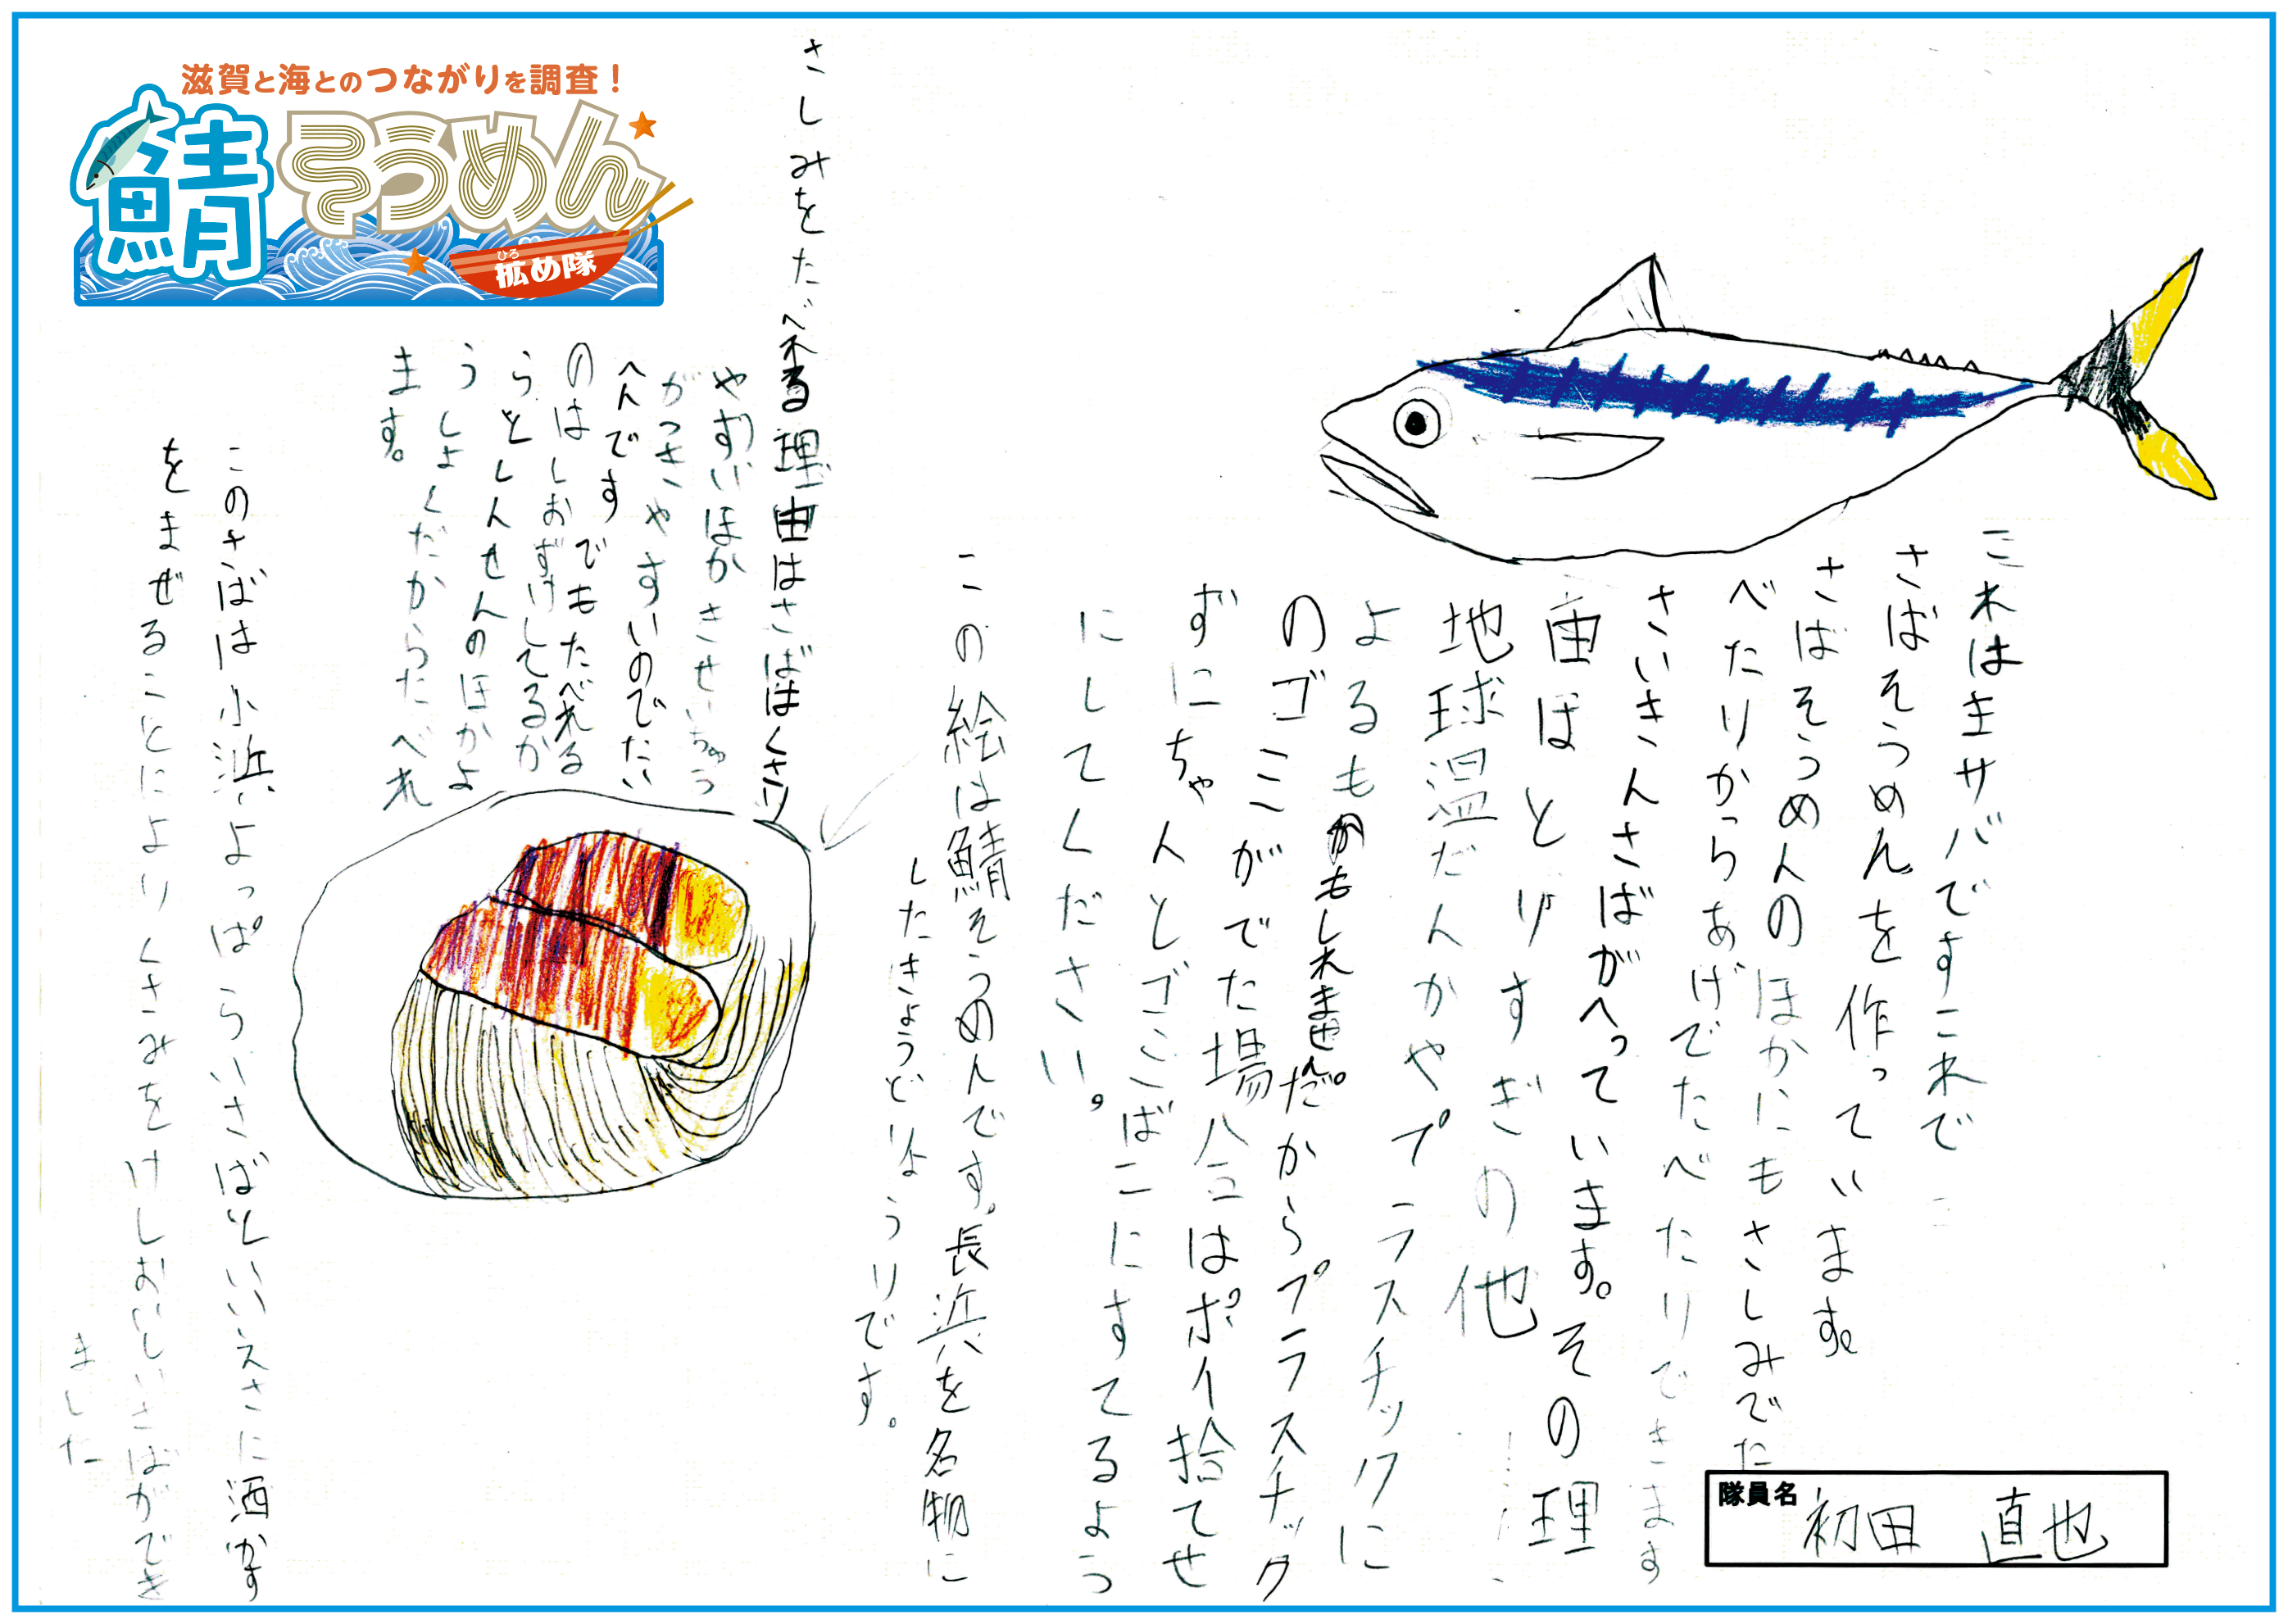 滋賀と海とのつながりを調査！
鯖そうめん
ひろ
拡め隊
これは主サバですこれで
さばそうめんを作っています。
さばそうめんのほかにもさしみでた
べたりからあげでたべたりできます
さいきんさばがへっています。その理
由ほとりすぎの他
地球温だんかやプラスチックに
よるものかもしれません。だからプラスチック
のゴミがでた場合はポイ捨てせ
ずにちゃんとゴミばこにすてるよう
にしてください。
この絵は鯖そうめんです。長浜を名物に
したきょうどりょうりです。
さしみをたべれる理由はさばはくさり
やすいほかきせいちゅう
がつきやすいのでたい
へんです でもたべれる
のはしおずけしてるか
らとしんせんのほかよ
うしょくだからたべれ
ます。
このさばは小浜よっぱらいさばといいえさに酒かす
をまぜることによりくさみをけしおいしいさばができ
ました
隊員名
初田 直也